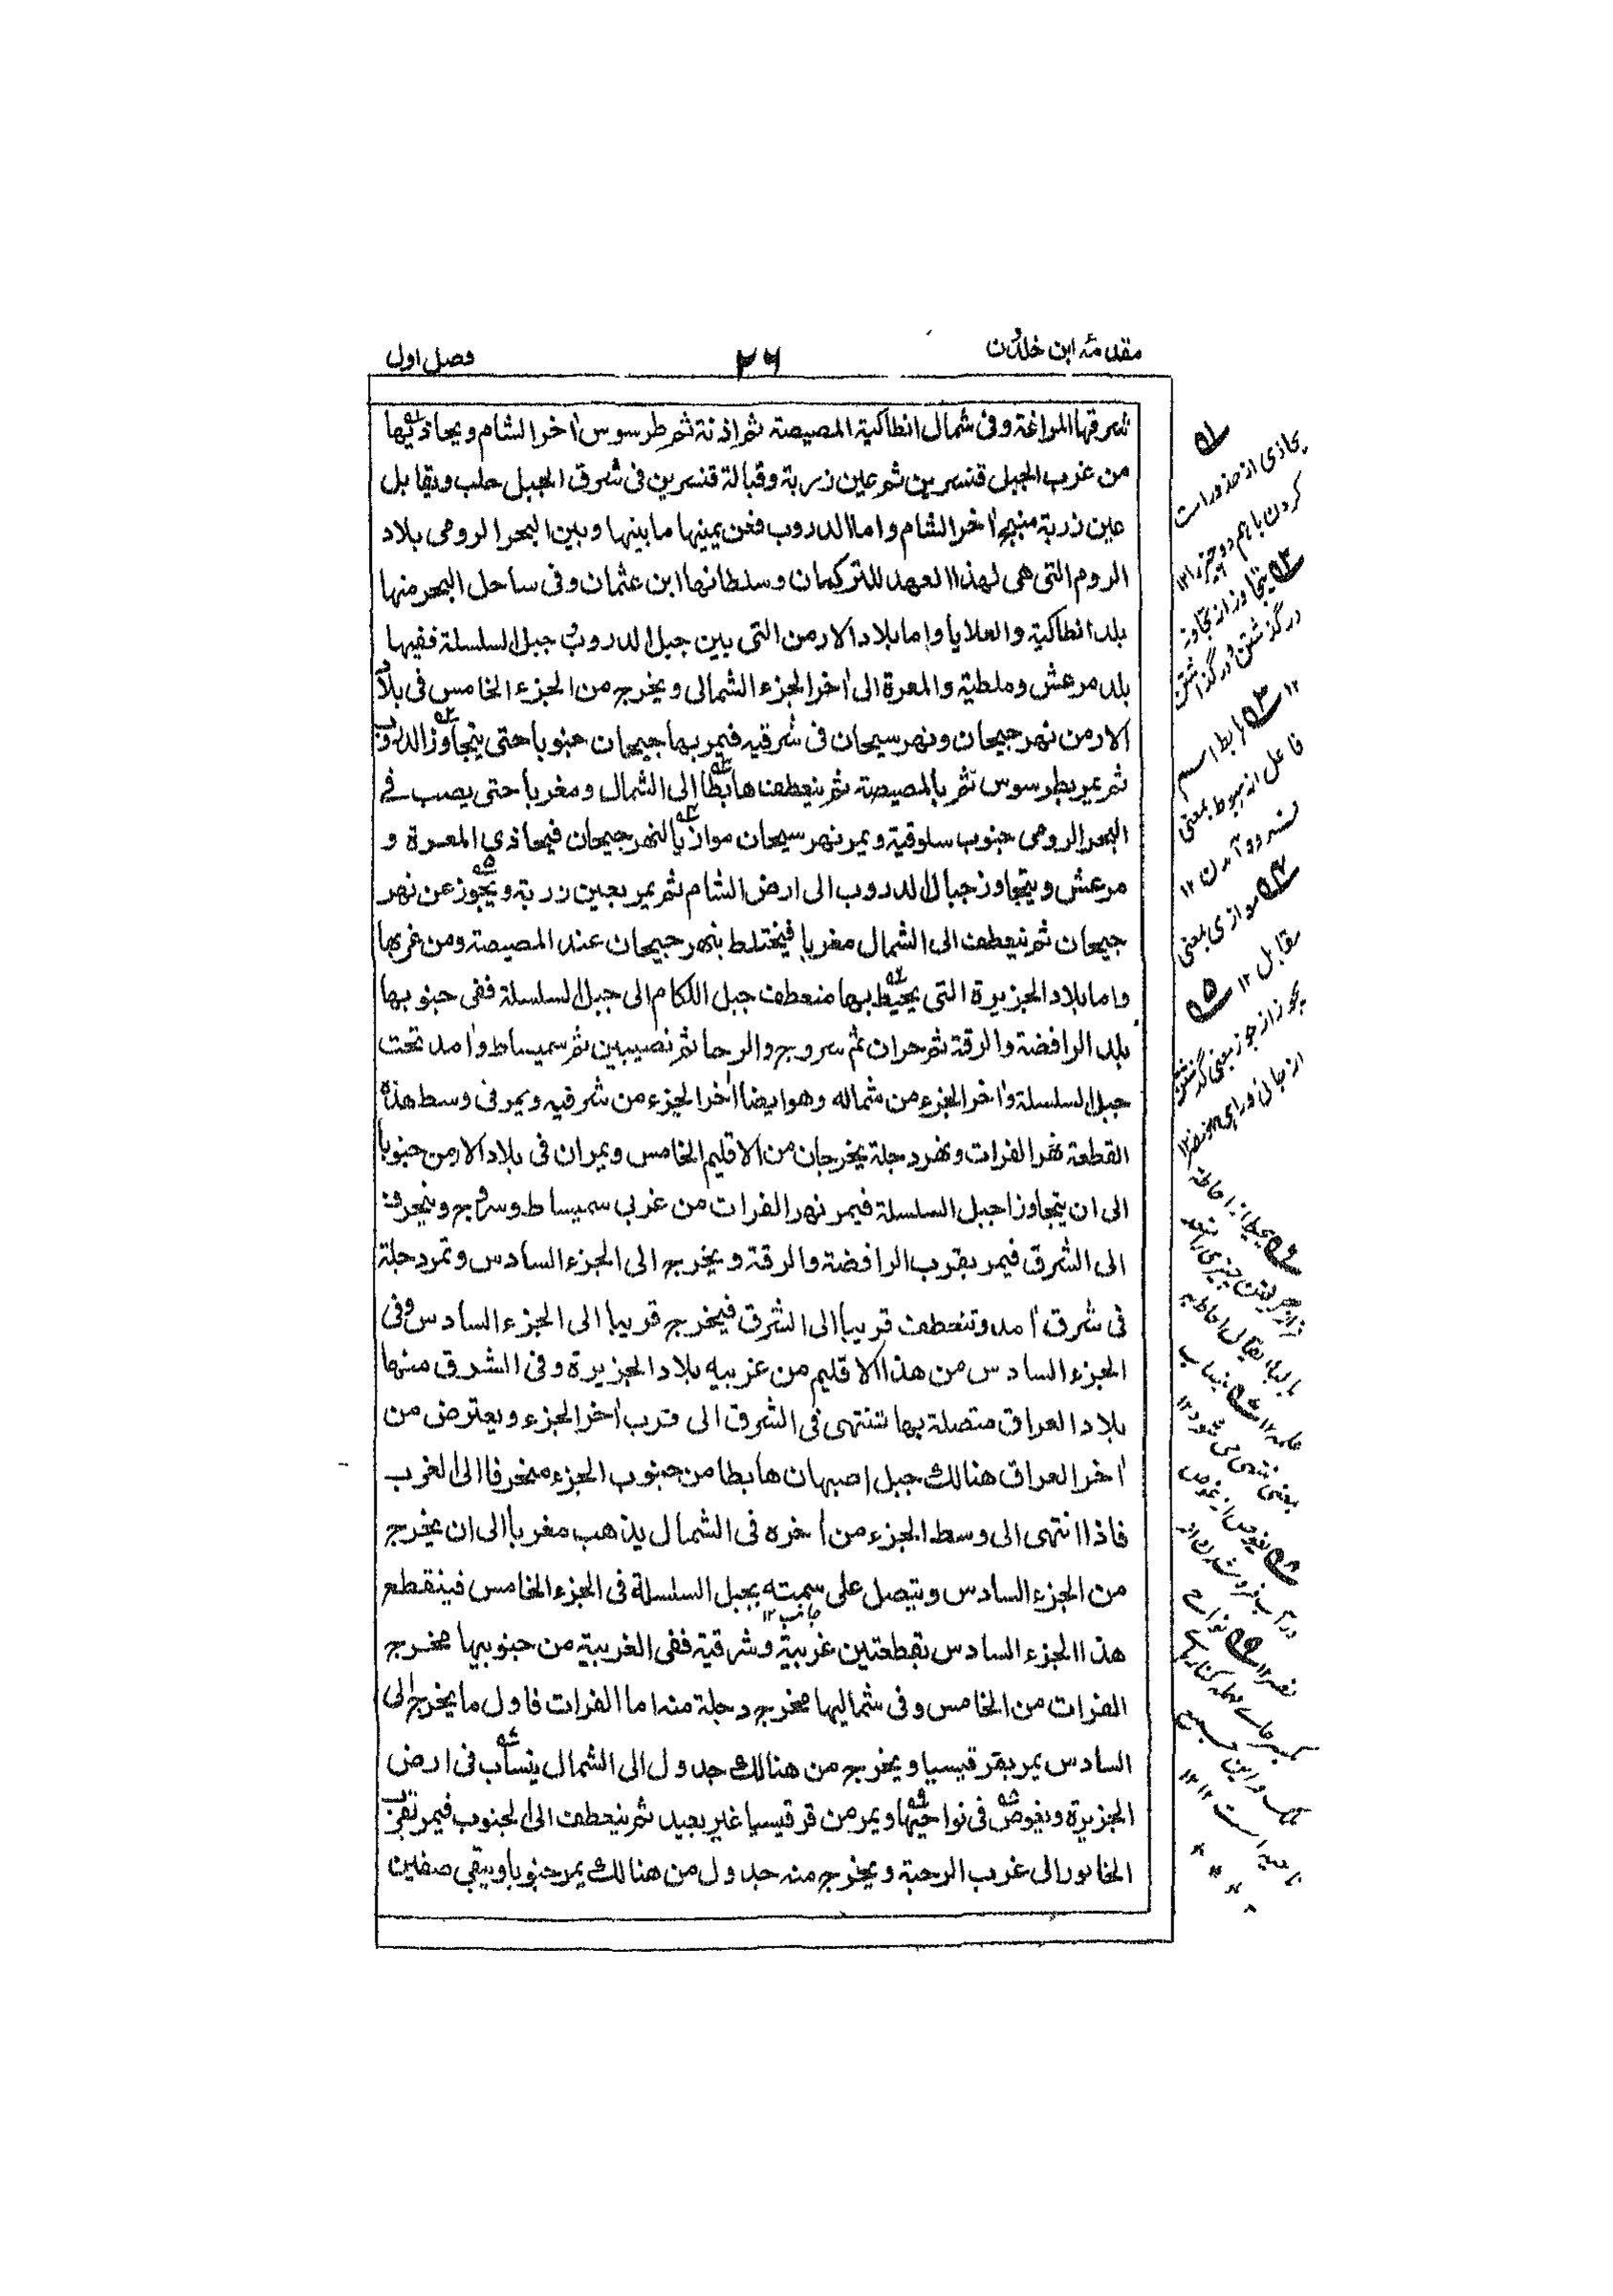 مقدمۂ ابن خلدون
۲۶
فصل اول
شرقها المراغة وفى شمال انطاكية المصيصة ثم اذنة ثم طرسوس اٰخر الشام ويحاذيها
من غرب الجبل قنسرين ثم عين زربة وقبالة قنسرين فى شرق الجبل حلب ويقابل
عين زربة منبج اٰخر الشام واما الدروب فعن يمينها مابينها وبين البحر الرومى بلاد
الروم التى هى لهذا العهد للتركمان وسلطانها ابن عثمان وفى ساحل البحر منها
بلد انطاكية والعلايا واما بلاد الارمن التى بين جبل الدروب وجبل السلسلة ففيها
بلد مرعش وملطية والمعرة الى اٰخر الجزء الشمالى ويخرج من الجزء الخامس فى بلاد
الارمن نهر جيحان ونهر سيحان فى شرقيه فيمر بها جيحان جنوبا حتى يتجاوز الدروب
ثم يمر بطرسوس ثم بالمصيصة ثم ينعطف هابطا الى الشمال ومغربا حتى يصب فے
البحر الرومى جنوب سلوقية ويمر نهر سيحان موازيا لنهر جيحان فيحاذى المعرة و
مرعش ويتجاوز جبال الدروب الى ارض الشام ثم يمر بعين زربة ويجوز عن نهر
جيحان ثم ينعطف الى الشمال مغربا فيختلط بنهر جيحان عند المصيصة ومن غربها
واما بلاد الجزيرة التى يحيط بها منعطف جبل اللكام الى جبل السلسلة ففى جنوبها
بلد الرافضة والرقة ثم حران ثم سروج والرحا ثم نصيبين ثم سميساط واٰمد تحت
جبل السلسلة واٰخر الجزء من شماله وهو ايضا اٰخر الجزء من شرقيه ويمر فى وسط هذه
القطعة نهر الفرات ونهر دجلة يخرجان من الاقليم الخامس ويمران فى بلاد الارمن جنوبا
الى ان يتجاوزا جبل السلسلة فيمر نهر الفرات من غربى سميساط وسروج وينحرف
الى الشرق فيمر بقرب الرافضة والرقة ويخرج الى الجزء السادس وتمر دجلة
فى شرق اٰمد وتنعطف قريبا الى الشرق فيخرج قريبا الى الجزء السادس وفى
الجزء السادس من هذا الاقليم من غربيه بلاد الجزيرة وفى الشرق منها
بلاد العراق متصلة بها تنتهى فى الشرق الى قرب اٰخر الجزء ويعترض من
اٰخر العراق هنالك جبل اصبهان هابطا من جنوب الجزء منحرفا الى الغرب
فاذا انتهى الى وسط الجزء من اٰخره فى الشمال يذهب مغربا الى ان يخرج
من الجزء السادس ويتصل على سمته بجبل السلسلة فى الجزء الخامس فينقطع
جانب ۱۲
هذا الجزء السادس بقطعتين غربية وشرقية ففى الغربية من جنوبيها مخرج
الفرات من الخامس وفى شماليها مخرج دجلة منه اما الفرات فاول ما يخرج الى
السادس يمر بقرقيسيا ويخرج من هنالك جدول الى الشمال ينساب فى ارض
الجزيرة ويغوص فى نواحيها ويمر من قرقيسيا غير بعيد ثم ينعطف الى الجنوب فيمر بقرب
الخابور الى غرب الرحبة ويخرج منه جدول من هنالك يمر جنوبا ويبقى صفين
۱ یحاذی از حذورات
کردن باہم دو چیز را ۱۲
۲ یتجاوز از تجاوز
درگذشتن و درگذاشتن
۱۲ ۳ ہابط اسم
فاعل از ہبوط بمعنی
فرود آمدن ۱۲
۴ موازی بمعنی
مقابل ۱۲ ۵
یجوز از جوز بمعنی گذشتن
از جائی
۶ یحیط از احاطہ